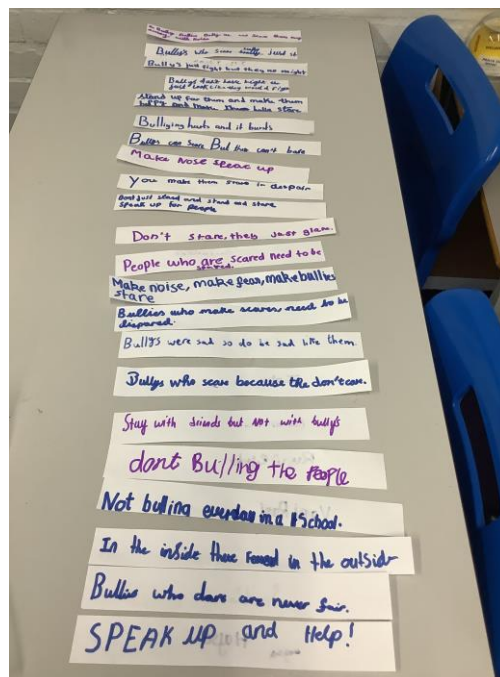 Bullys who scare really just it
Bully's just fight but they no might
Bullys dont have might
just
Stand up for them and make them
happy and make them bulls stare
Bulliying hurts and it bursts
Bullies can scare But they can't bare
Make nose speac up
You make them stare in despair
Dont just stand and stand and stare
Speak up for people
Don't stare, they just glare.
People who are scared need to be
Make noise, make fear, make bullies
stare
Bullies who make scares need to be
dispared.
Bullys were sad so do be sad like them.
Bullys who scare because the don't care.
Stay with friends but not with bullys
dont Bulling the People
Not bulling everday in a School.
In the inside there in the outside
Bullies who dare are never fair.
SPEAK UP and Help!